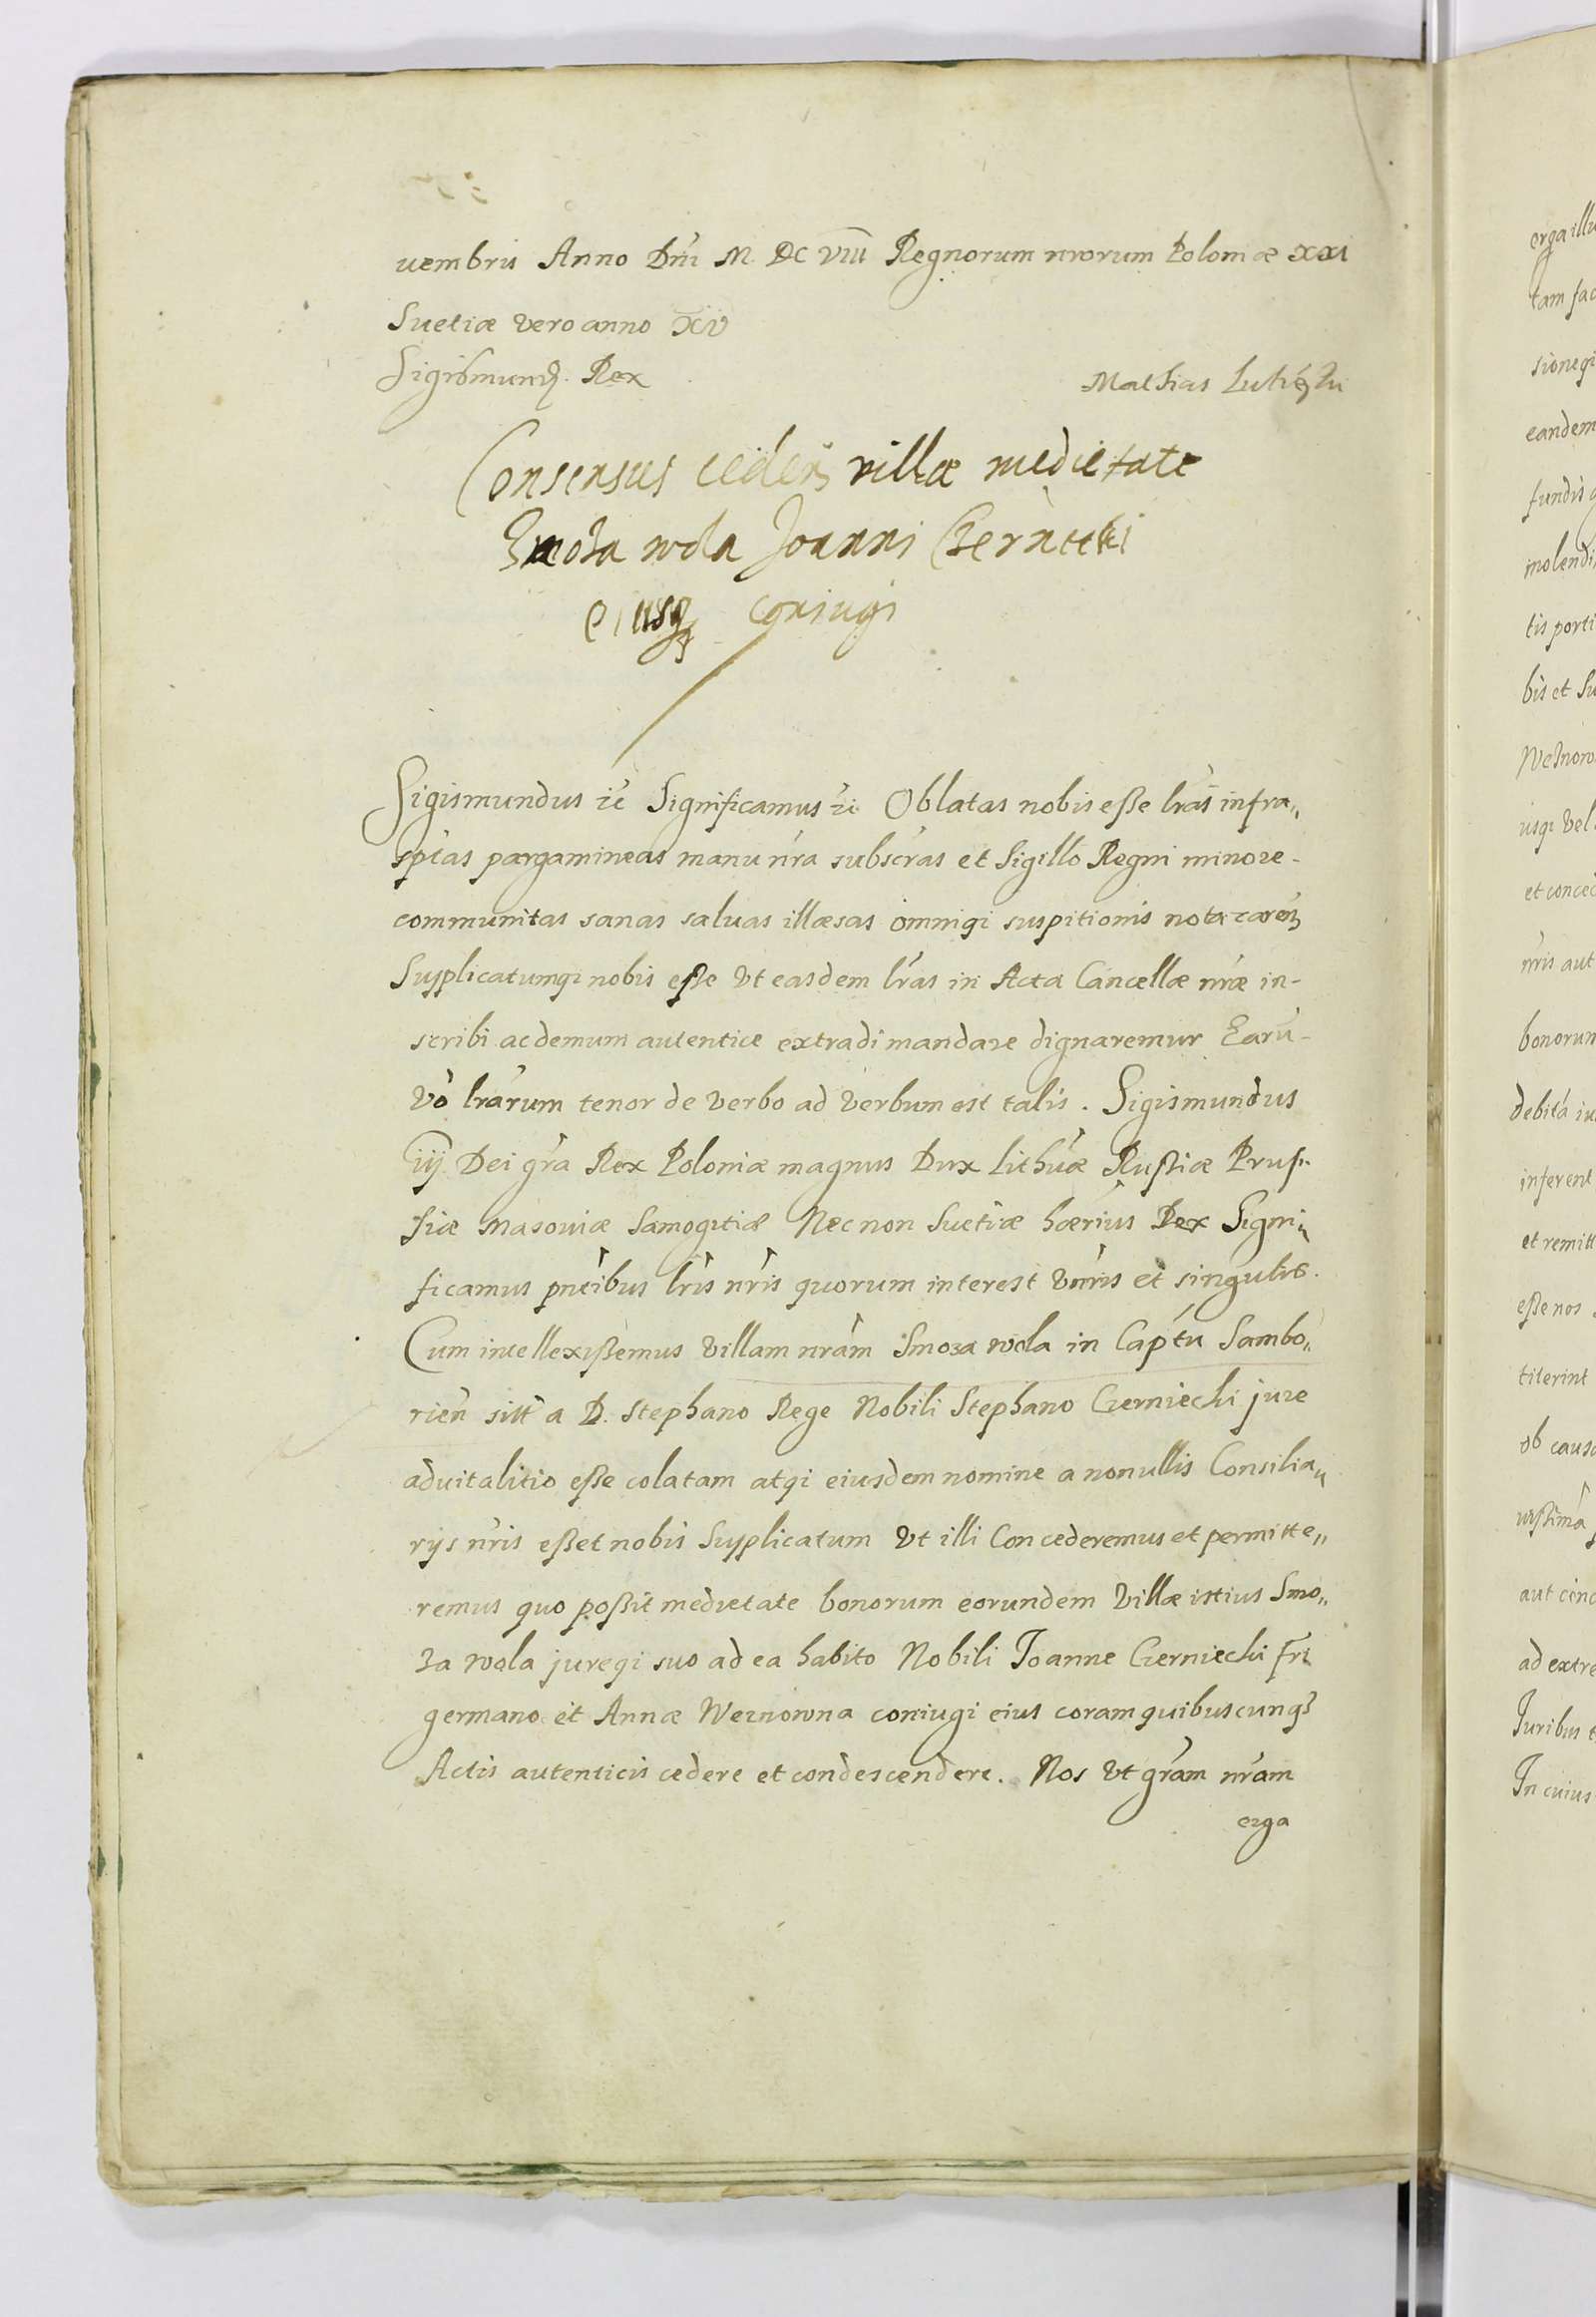 uembris Anno Dni M. DC VIII Regnorum nrorum Poloniæ XXI
Suetiæ vero anno XV
Sigismunds. Rex
Mathias
Consensus cedens villæ medietate
Smoza wola Joanni Czerniecki
eiusqz coniugi
Sigismundus &c Significamus &c. Oblatas nobis eße lras infra„
sptas pargamineas manu nra subscras et Sigillo Regni minore-
communitas sanas saluas illæsas omniqi suspitionis nota caren
Supplicatumqi nobis eße Vt easdem lras in Acta Cancellæ nræ in-
scribi ac demum autentice extradi mandare dignaremur Earu-
Vo lrarum tenor de verbo ad verbum est talis. Sigismundus
iij Dei gra Rex Poloniæ magnus Dux Lithuæ Rußiæ Prus-
siæ Masouiæ Samogitiæ Nec non Suetiæ hærius Rex Signi„
ficamus pntibus lris nris quorum interest Vnius et singulis.
Cum intellexißemus Villam nram Smoza wola in Captu Sambo„
rien sitt a D. Stephano Rege Nobili Stephano Czerniecki jure
aduitalitio eße colatam atqi eiusdem nomine a nonullis Consilia„
rijs nris eßet nobis Supplicatum Vt illi Concederemus et permitte„
remus quo poßit medietate bonorum eorundem Villæ istius Smo„
za wola jureqi suo ad ea habito Nobili Joanne Czerniecki fri
germano et Annæ Weznowna coniugi eius coram quibuscunqz
Actis autenticis cedere et condescendere. Nos Vt gram nram
erga
erga illu
tam fac
sioneqi
eandem
fundis q
molendi
tis porti
bis et Su
Weznow
iisqz Vel
et conced
nris aut
bonorum
debita iu
inferent
et remitt
eße nos
titerint
ob causa
aut cinc
ad extre
Iuribus
In cuius